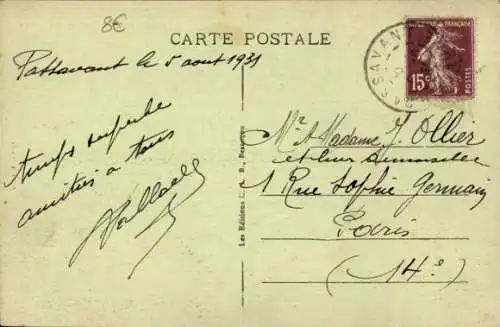 8€
CARTE POSTALE
Passavant le 5 aout 1931
temps superbe
amitiés a tous
Les Editions C. . B., Besançon
RÉPUBLIQUE FRANÇAISE
15c
POSTES
PASSAVAN
Mr & Madame J. Ollier
et leur demoiselle
1 Rue Sophie Germain
Paris
(14e)